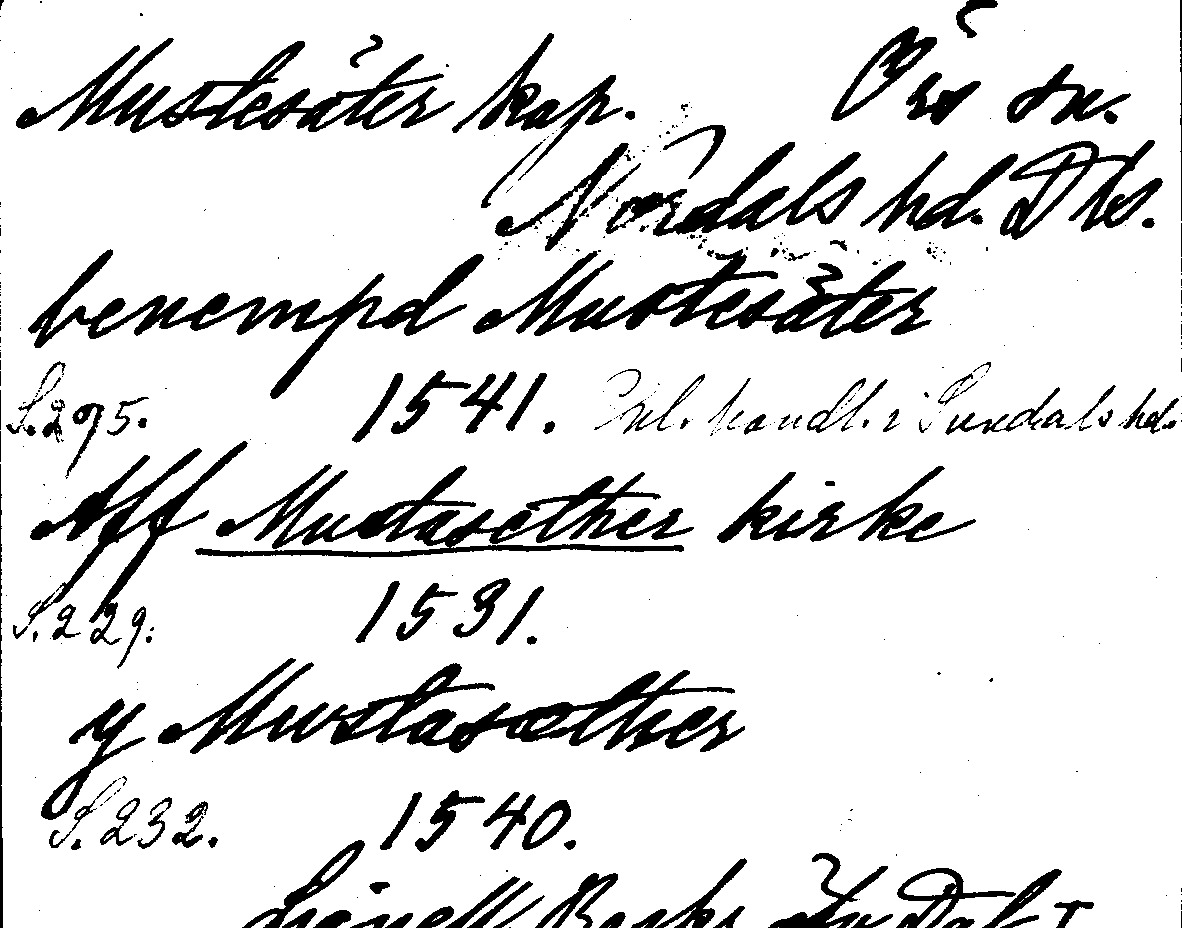 Mustesäter kap. Örs sn.
Nordals hd. Dls.
benempd Mustesäter
S. 295. 1541. handl. i Sundals hd.
Aff Mustasether kirke
S. 229. 1531.
y Mustasæther
S. 232. 1540.
Lignell Beskr. Dal I